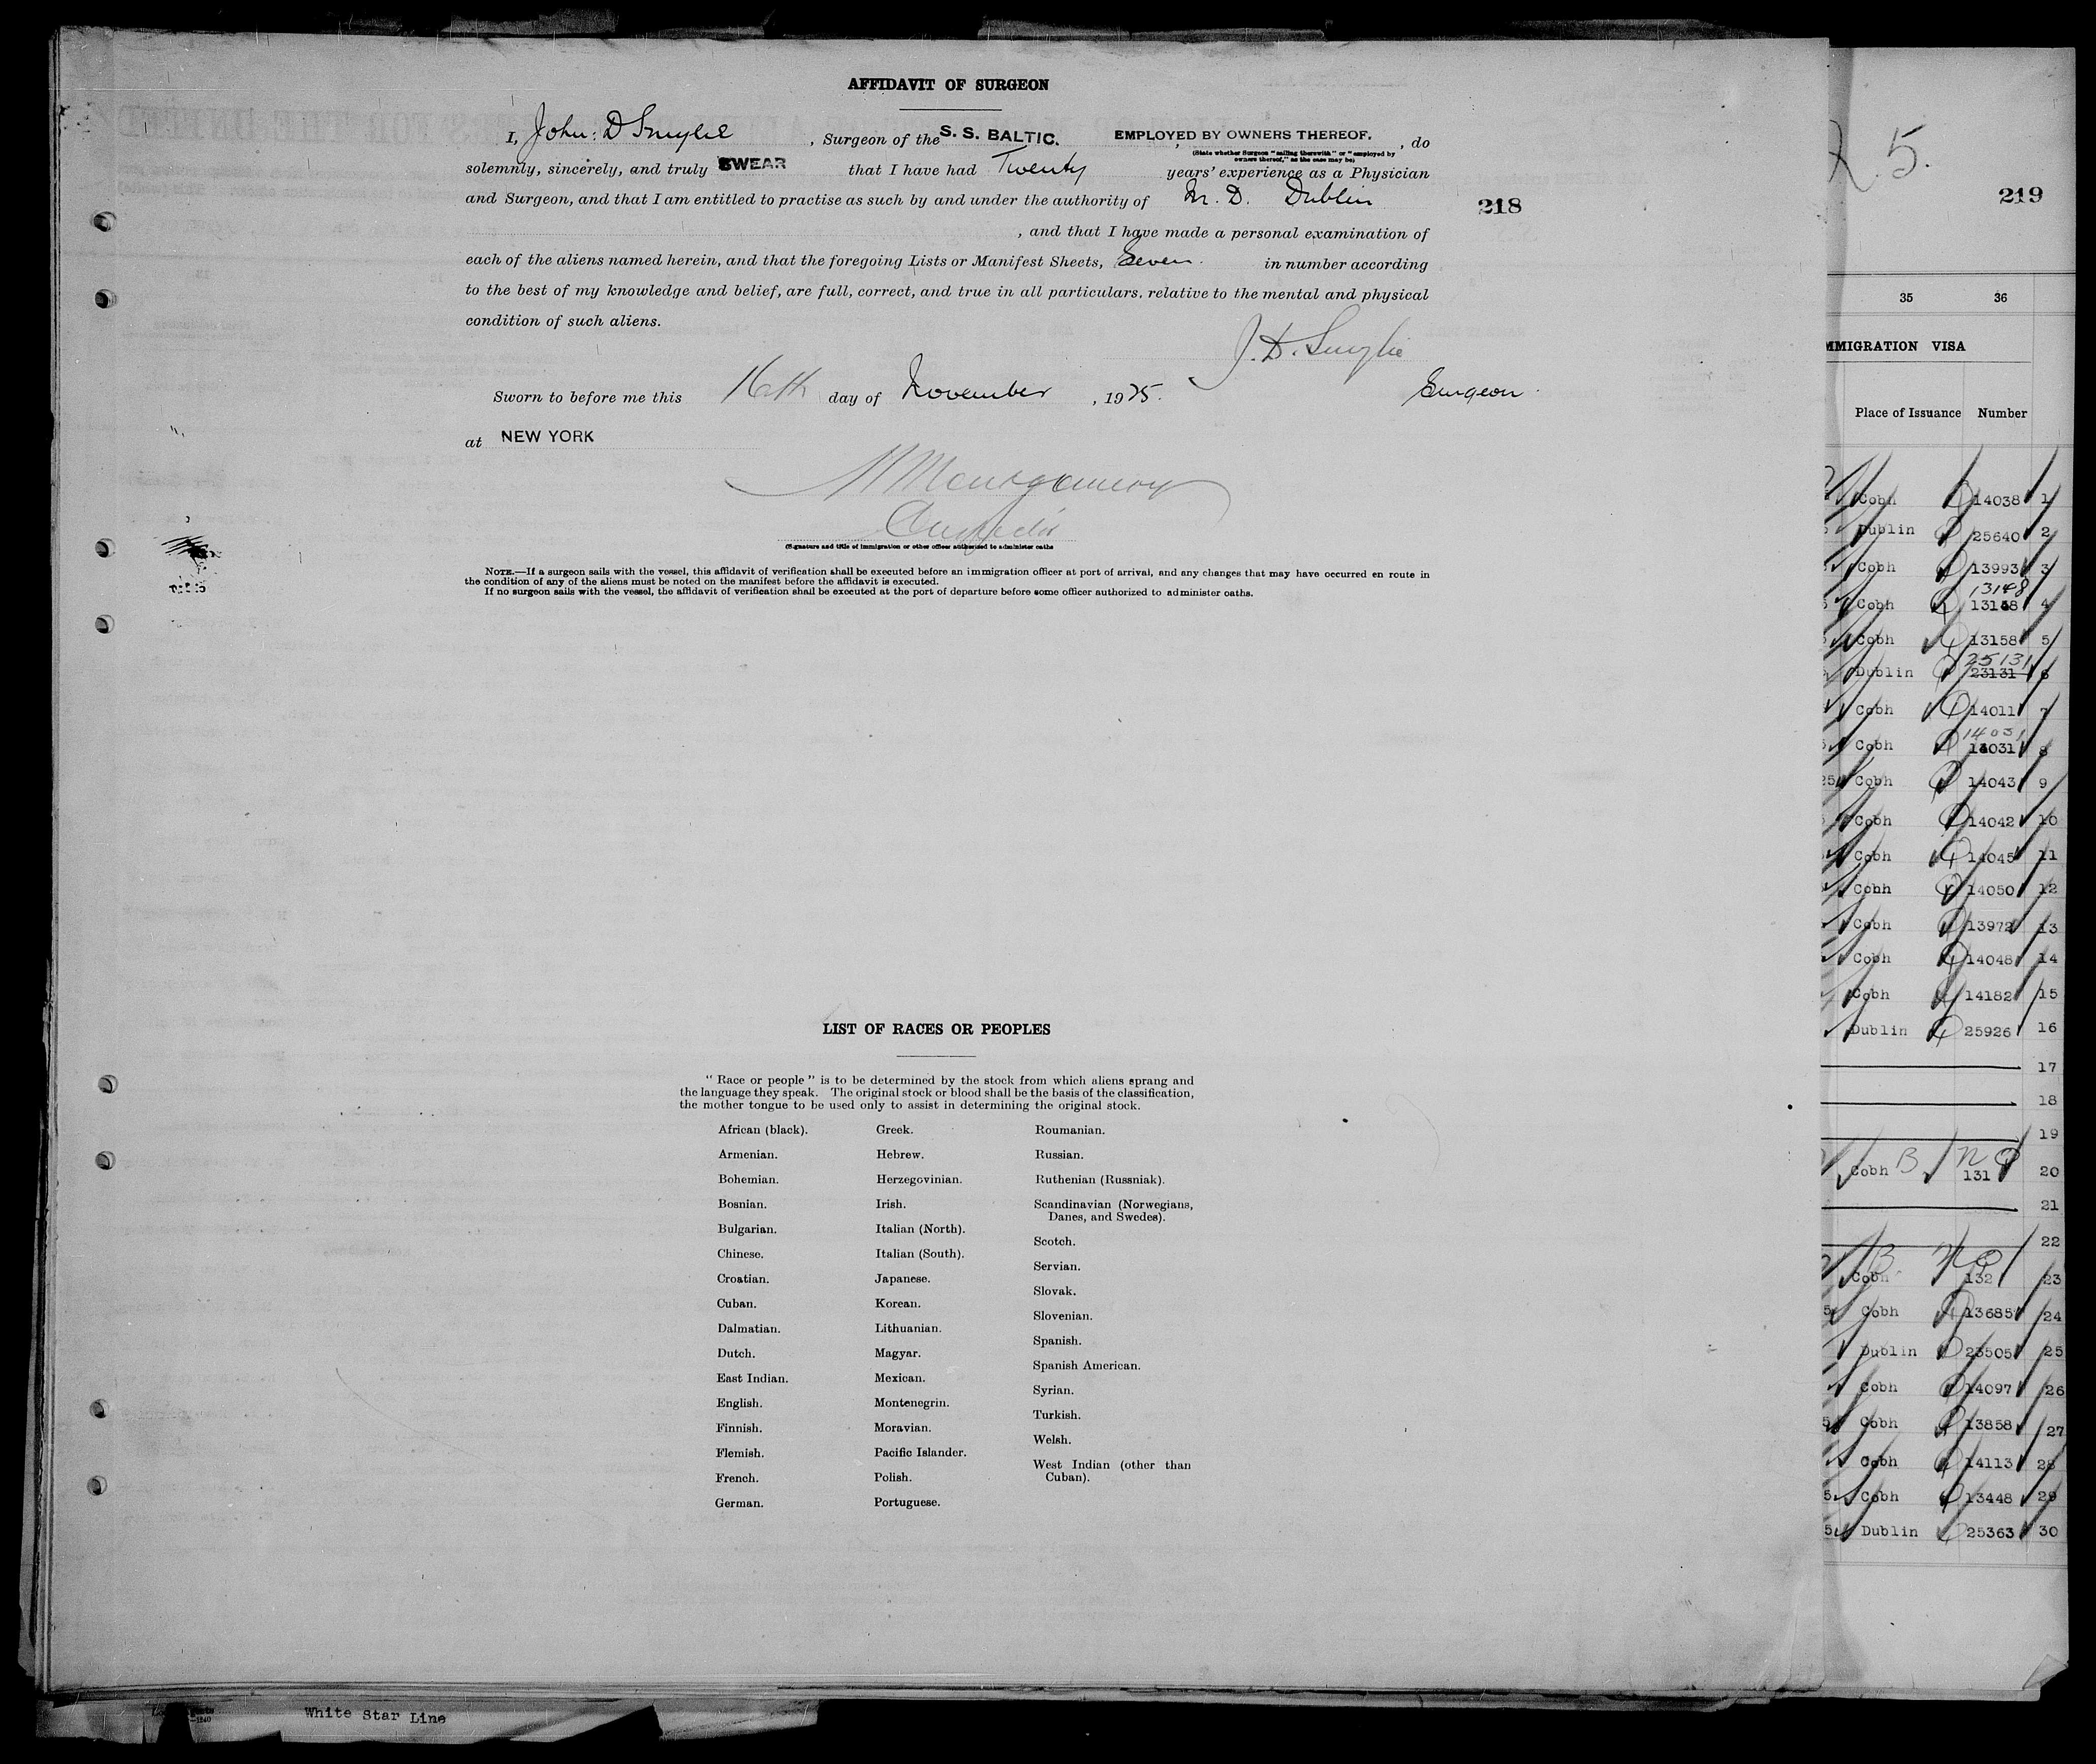 AFFIDAVIT OF SURGEON
I, John: D Smylie, Surgeon of the S. S. BALTIC. EMPLOYED BY OWNERS THEREOF., do
(State whether Surgeon "sailing therewith" or "employed by
owners thereof," as the case may be)
solemnly, sincerely, and truly SWEAR that I have had Twenty years' experience as a Physician
and Surgeon, and that I am entitled to practise as such by and under the authority of M. D. Dublin
, and that I have made a personal examination of
each of the aliens named herein, and that the foregoing Lists or Manifest Sheets, Seven in number according
to the best of my knowledge and belief, are full, correct, and true in all particulars, relative to the mental and physical
condition of such aliens.
J. D. Smylie
Surgeon
Sworn to before me this 16th day of November, 1925.
at NEW YORK
Montgomery
(Signature and title of immigration or other officer authorized to administer oaths
NOTE.—If a surgeon sails with the vessel, this affidavit of verification shall be executed before an immigration officer at port of arrival, and any changes that may have occurred en route in
the condition of any of the aliens must be noted on the manifest before the affidavit is executed.
If no surgeon sails with the vessel, the affidavit of verification shall be executed at the port of departure before some officer authorized to administer oaths.
218
LIST OF RACES OR PEOPLES
"Race or people" is to be determined by the stock from which aliens sprang and
the language they speak. The original stock or blood shall be the basis of the classification,
the mother tongue to be used only to assist in determining the original stock.
African (black).
Armenian.
Bohemian.
Bosnian.
Bulgarian.
Chinese.
Croatian.
Cuban.
Dalmatian.
Dutch.
East Indian.
English.
Finnish.
Flemish.
French.
German.
Greek.
Hebrew.
Herzegovinian.
Irish.
Italian (North).
Italian (South).
Japanese.
Korean.
Lithuanian.
Magyar.
Mexican.
Montenegrin.
Moravian.
Pacific Islander.
Polish.
Portuguese.
Roumanian.
Russian.
Ruthenian (Russniak).
Scandinavian (Norwegians,
Danes, and Swedes).
Scotch.
Servian.
Slovak.
Slovenian.
Spanish.
Spanish American.
Syrian.
Turkish.
Welsh.
West Indian (other than
Cuban).
White Star Line
5.
219
35 36
MMIGRATION VISA
Place of Issuance Number
Cobh 14038 1
Dublin 25640 2
Cobh 13993 3
13148
Cobh 4
Cobh 13158 5
25131
Dublin 23131 6
Cobh 14011 7
14031
Cobh 8
Cobh 14043 9
Cobh 14042 10
Cobh 14045 11
Cobh 14050 12
Cobh 13972 13
Cobh 14048 14
Cobh 14182 15
Dublin 25926 16
17
18
19
Cobh B NQ 131 20
21
22
B NQ
Cobh 132 23
Cobh 13685 24
Dublin 23505 25
Cobh 14097 26
Cobh 13858 27
Cobh 14113 28
Cobh 13448 29
Dublin 25363 30